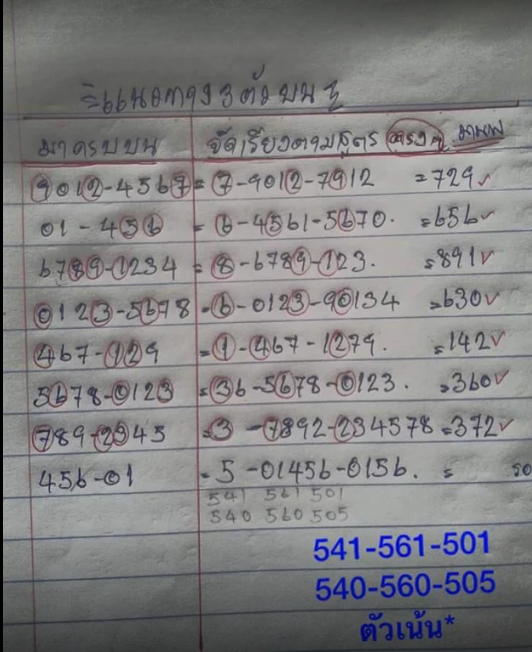 3 ตัวบน
มาครบบน จัดเรียงตามสูตร ตรงๆ
9012-4567 = 7-9012-7912 =729✓
01-456 = 6-4561-5670. =656✓
6789-1234 = 8-6789-123. =891✓
0123-5678 = 6-0123-90134 =630✓
467-129 =1-467-1279. =142✓
5678-0123 =36-5678-0123. =360✓
789-2345 =3-7892-234578 =372✓
456-01 =5-01456-0156. = รอ
541 561 501
540 560 505
541-561-501
540-560-505
ตัวเน้น*